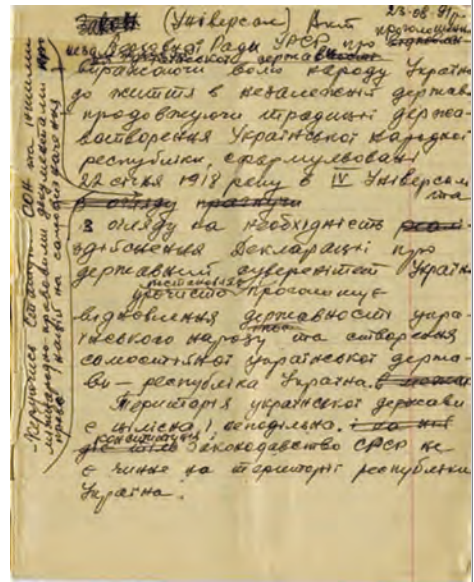 23-08-91р.
Закон (Універсал) Акт проголошення
Верховної Ради УРСР про
виражаючи волю народу України
до життя в незалежній державі
продовжуючи традиції держа-
вотворення Української народної
республіки, сформульовані
22 січня 1918 року в IV Універсалі
та
з огляду прагнучи
з огляду на необхідність
здійснення Декларації про
державний суверенітет України
урочисто проголошує
відновлення державності укра-
їнського народу та створення
самостійної української держа-
ви – республіка Україна.
Територія української держави
є цілісна і неподільна.
конституція і
законодавство СРСР не
є чинне на території республіки
Україна.
- Керуючись Статутом ООН та іншими
міжнародно-правовими документами про
право націй на самовизначення